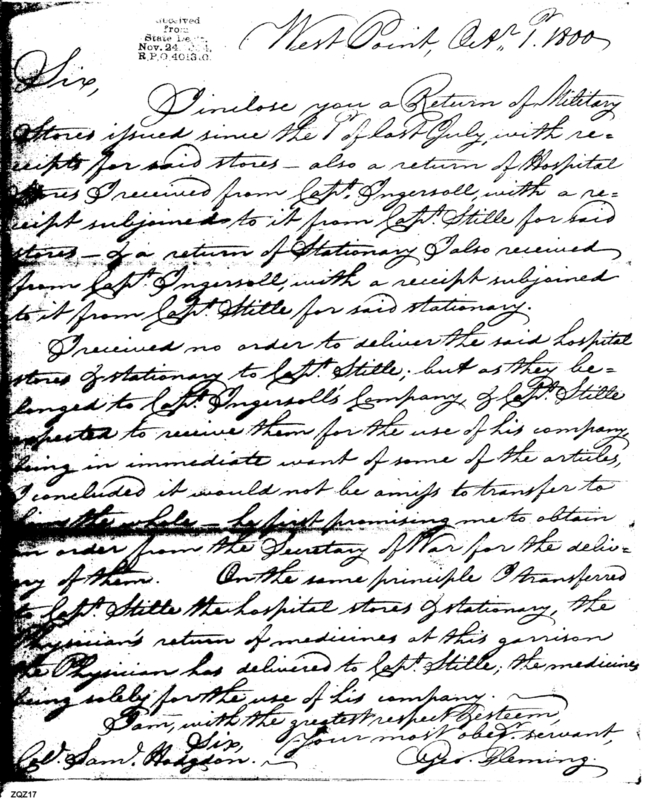 Received
from
State Dept.
Nov. 24,
R.P.O. 4013.0.
West Point, Octr. 1st. 1800
Sir,
I inclose you a Return of Military
Stores issued since the 1st of last July, with re=
ceipts for said stores – also a return of Hospital
Stores I received from Capt. Ingersoll, with a re=
ceipt subjoined to it from Capt. Stille for said
stores – & a return of Stationary I also received
from Capt. Ingersoll, with a receipt subjoined
to it from Capt. Stille for said stationary.
I received no order to deliver the said hospital
stores & stationary to Capt. Stille; but as they be=
longed to Capt. Ingersoll's Company, & Capt. Stille
expected to receive them for the use of his company,
being in immediate want of some of the articles,
I concluded it would not be amiss to transfer to
him the whole – he first promising me to obtain
an order from the Secretary of War for the deliv=
ery of them. On the same principle I transferred
to Capt. Stille the hospital stores & stationary, the
Physician's return of medicines at this garrison
the Physician has delivered to Capt. Stille; the medicines
being solely for the use of his company.
I am, with the greatest respect & esteem,
Sir, Your most obedt. servant,
Colo. Saml. Hodgdon. Geo. Fleming
ZQZ17